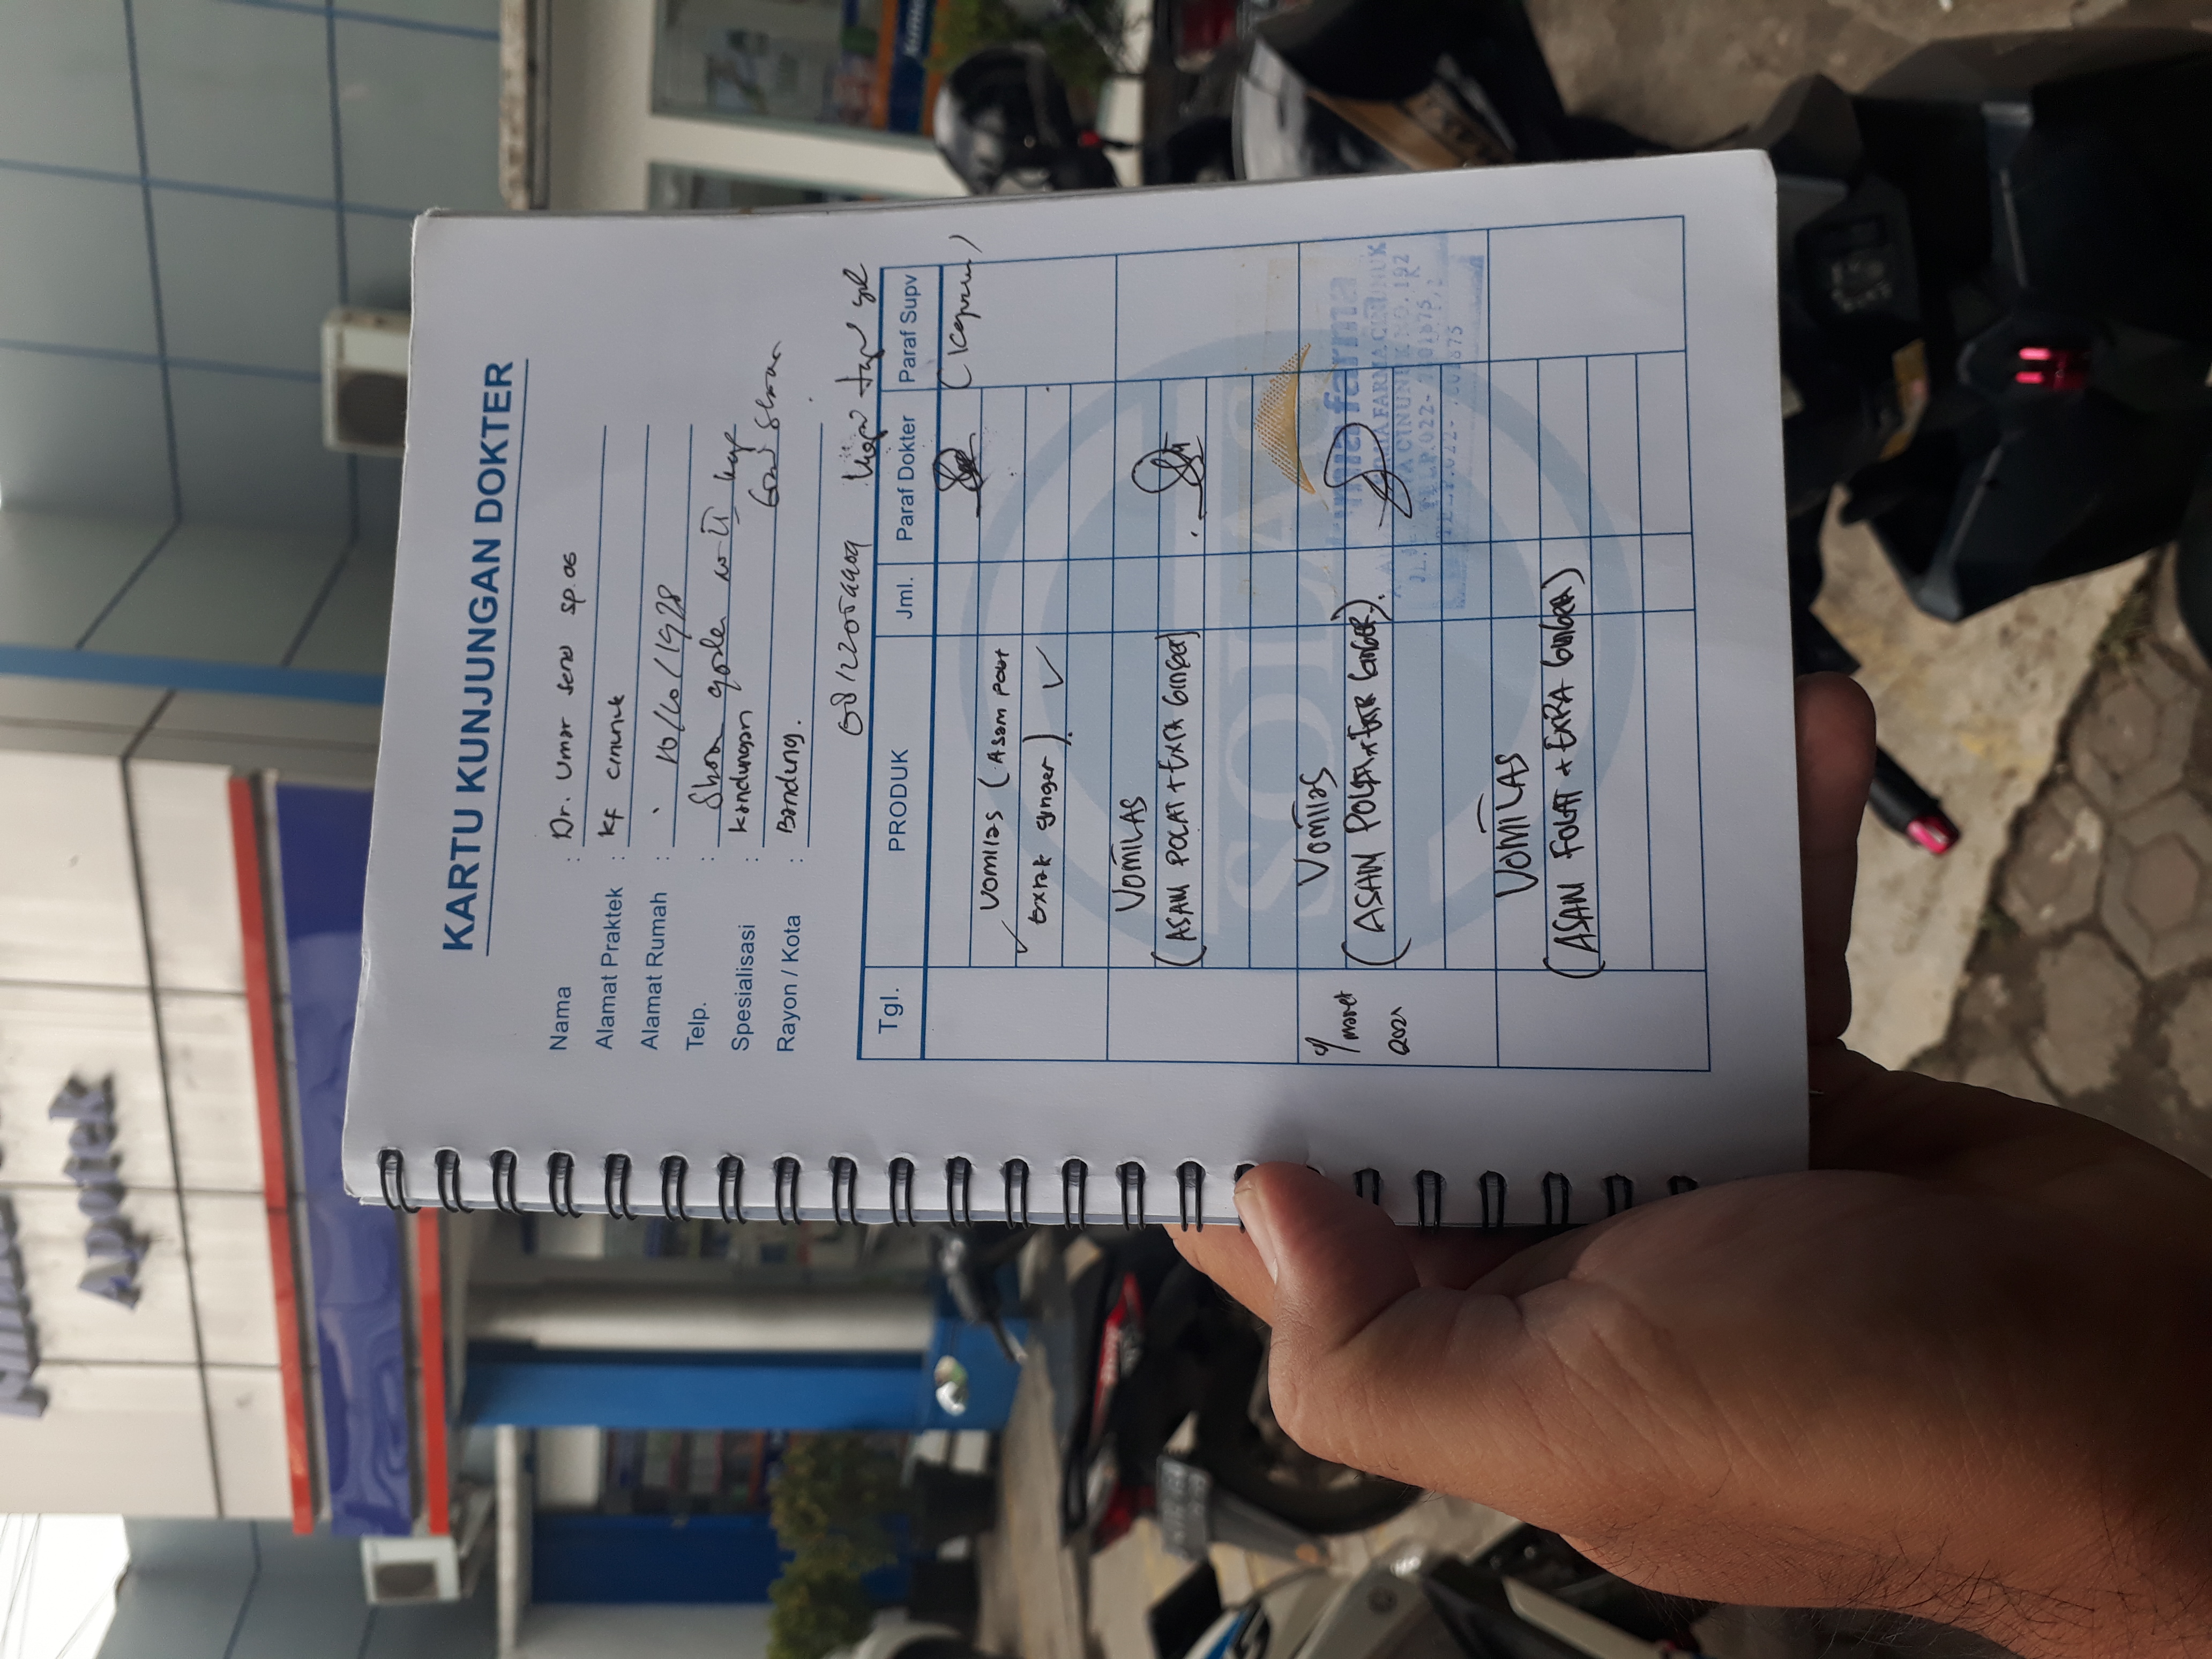 Apotek
KARTU KUNJUNGAN DOKTER
Nama : Dr. Umar Seno SP.OG
Alamat Praktek : KF Cinunuk
Alamat Rumah : 10/10/1978
Telp. :
Spesialisasi : Kandungan
Rayon / Kota : Bandung.
Tgl. PRODUK Jml. Paraf Dokter Paraf Supv
Vomilas (Asam Polat
Extrak ginger).
VOMILAS
(ASAM POLAT + EXTRA GINGER)
9/maret 2021
Vomilas
(ASAM POLAT + EXTR GINGER).
VOMILAS
(ASAM FOLAT + EXTRA GINGER)
SOLAS
kimia farma
KIMIA FARMA CINUNUK
CINUNUK NO. 192
TELP.022- 7801875
TELP.022- 7801875